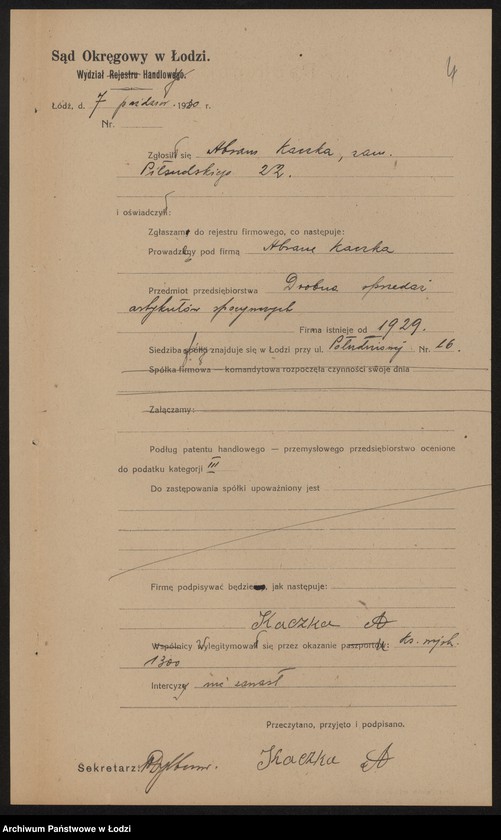 4
Sąd Okręgowy w Łodzi.
Wydział Rejestru Handlowego.
Łódź, d. 7 paździer. 1930 r.
Nr.
Zgłosił się Abram Kaczka, zam.
Piłsudskiego 22.
i oświadczył:
Zgłaszam do rejestru firmowego, co następuje:
Prowadzę pod firmą Abram Kaczka
Przedmiot przedsiębiorstwa Drobna sprzedaż
artykułów spożywczych
Firma istnieje od 1929.
Siedziba znajduje się w Łodzi przy ul. Południowej Nr. 26.
Spółka firmowa — komandytowa rozpoczęła czynności swoje dnia
Załączamy:
Podług patentu handlowego — przemysłowego przedsiębiorstwo ocenione
do podatku kategorji III
Do zastępowania spółki upoważniony jest
Firmę podpisywać będzie, jak następuje:
Kaczka A
Wspólnicy wylegitymował się przez okazanie paszportów: ks. wojsk.
1300
Intercyzy nie zawarł
Przeczytano, przyjęto i podpisano.
Sekretarz: Kaczka A
Archiwum Państwowe w Łodzi